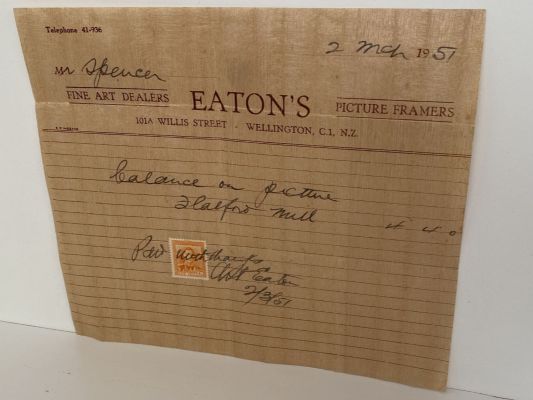 Telephone 41-936
2 Mch 1951
Mr Spencer
FINE ART DEALERS EATON'S PICTURE FRAMERS
101A WILLIS STREET . WELLINGTON, C.1, N.Z.
balance on picture
Flatford Mill 4 4 0
Pd with thanks
Eaton
2/3/51